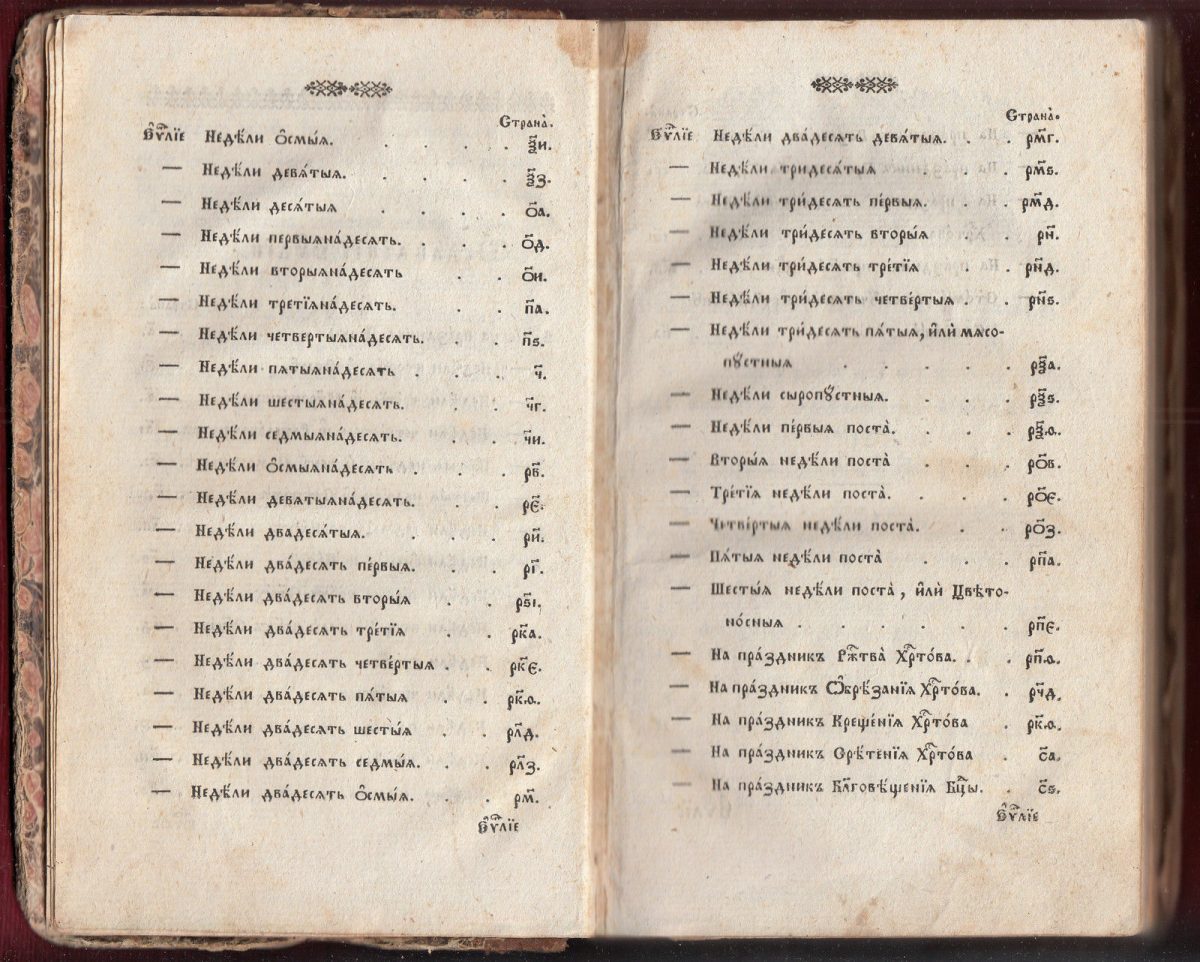 Странà.
Є҆ѵⷢ҇лїе Недѣ́ли ѻ҆смы́ѧ. ѯ҃и.
— Недѣ́ли девѧ́тыѧ. ѯ҃з.
— Недѣ́ли десѧ́тыѧ ѻ҃а.
— Недѣ́ли первыѧна́десѧть. ѻ҃д.
— Недѣ́ли вторыѧна́десѧть ѻ҃и.
— Недѣ́ли третїѧна́десѧть. п҃а.
— Недѣ́ли четвертыѧна́десѧть. п҃ѕ.
— Недѣ́ли пѧтыѧна́десѧть ч҃.
— Недѣ́ли шестыѧна́десѧть. ч҃г.
— Недѣ́ли седмыѧна́десѧть. ч҃и.
— Недѣ́ли ѻ҆смыѧна́десѧть р҃в.
— Недѣ́ли девѧтыѧна́десѧть. р҃є.
— Недѣ́ли двадесѧ́тыѧ. р҃и.
— Недѣ́ли два́десѧть пе́рвыѧ. рг҃і.
— Недѣ́ли два́десѧть вторы́ѧ рѕ҃і.
— Недѣ́ли два́десѧть тре́тїѧ рк҃а.
— Недѣ́ли два́десѧть четве́ртыѧ рк҃є.
— Недѣ́ли два́десѧть пѧ́тыѧ рк҃ѳ.
— Недѣ́ли два́десѧть шесты́ѧ рл҃д.
— Недѣ́ли два́десѧть седмы́ѧ. рл҃з.
— Недѣ́ли два́десѧть ѻ҆смы́ѧ. рм҃.
Є҆ѵⷢ҇лїе
Странà.
Є҆ѵⷢ҇лїе Недѣ́ли два́десѧть девѧ́тыѧ. рм҃г.
— Недѣ́ли тридесѧ́тыѧ рм҃ѕ.
— Недѣ́ли три́десѧть пе́рвыѧ. рм҃д.
— Недѣ́ли три́десѧть вторы́ѧ рн҃.
— Недѣ́ли три́десѧть тре́тїѧ рн҃д.
— Недѣ́ли три́десѧть четве́ртыѧ рн҃ѕ.
— Недѣ́ли три́десѧть пѧ́тыѧ, и҆лѝ мѧсо-
пꙋ́стныѧ рѯ҃а.
— Недѣ́ли сыропꙋ́стныѧ. рѯ҃ѕ.
— Недѣ́ли пе́рвыѧ поста̀. рѯ҃ѳ.
— Вторы́ѧ недѣ́ли поста̀ рѻ҃в.
— Тре́тїѧ недѣ́ли поста̀. рѻ҃є.
— Четве́ртыѧ недѣ́ли поста̀. рѻ҃з.
— Пѧ́тыѧ недѣ́ли поста̀ рп҃а.
— Шесты́ѧ недѣ́ли поста̀, и҆лѝ Цвѣто-
но́сныѧ рп҃є.
— На пра́здникъ Рⷤ҇тва̀ Хрⷭ҇то́ва. рп҃ѳ.
— На пра́здникъ Ѡ҆брѣ́занїѧ Хрⷭ҇то́ва. рч҃д.
— На пра́здникъ Креще́нїѧ Хрⷭ҇то́ва рк҃ѳ.
— На пра́здникъ Срѣ́тенїѧ Хрⷭ҇то́ва с҃а.
— На пра́здникъ Бл҃говѣ́щенїѧ Бцⷣы. с҃ѕ.
Є҆ѵⷢ҇лїе